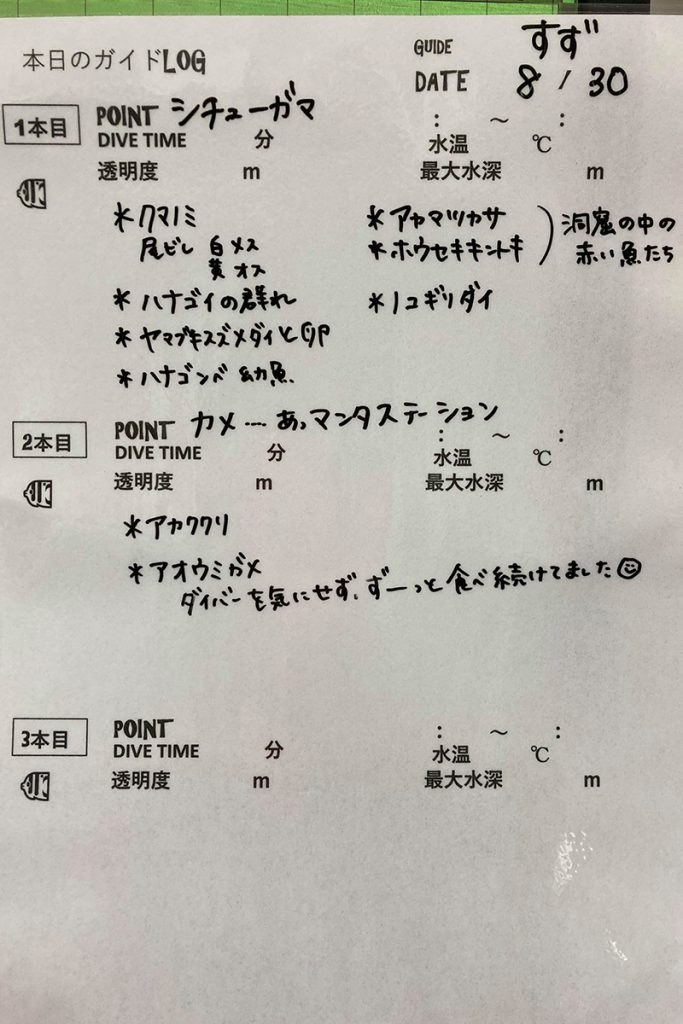 本日のガイドLOG
GUIDE すず
DATE 8 / 30
1本目 POINT シチューガマ : ～ :
DIVE TIME 分 水温 ℃
透明度 m 最大水深 m
＊クマノミ
尾ビレ 白 メス
黄 オス
＊ハナゴイの群れ
＊ヤマブキスズメダイとGP
＊ハナゴンベ 幼魚
＊アカマツカサ
＊ホウセキキントキ
洞窟の中の
赤い魚たち
＊ノコギリダイ
2本目 POINT カメ…. あっマンタステーション : ～ :
DIVE TIME 分 水温 ℃
透明度 m 最大水深 m
＊アカククリ
＊アオウミガメ
ダイバーを気にせず、ずーっと食べ続けてました☺
3本目 POINT : ～ :
DIVE TIME 分 水温 ℃
透明度 m 最大水深 m